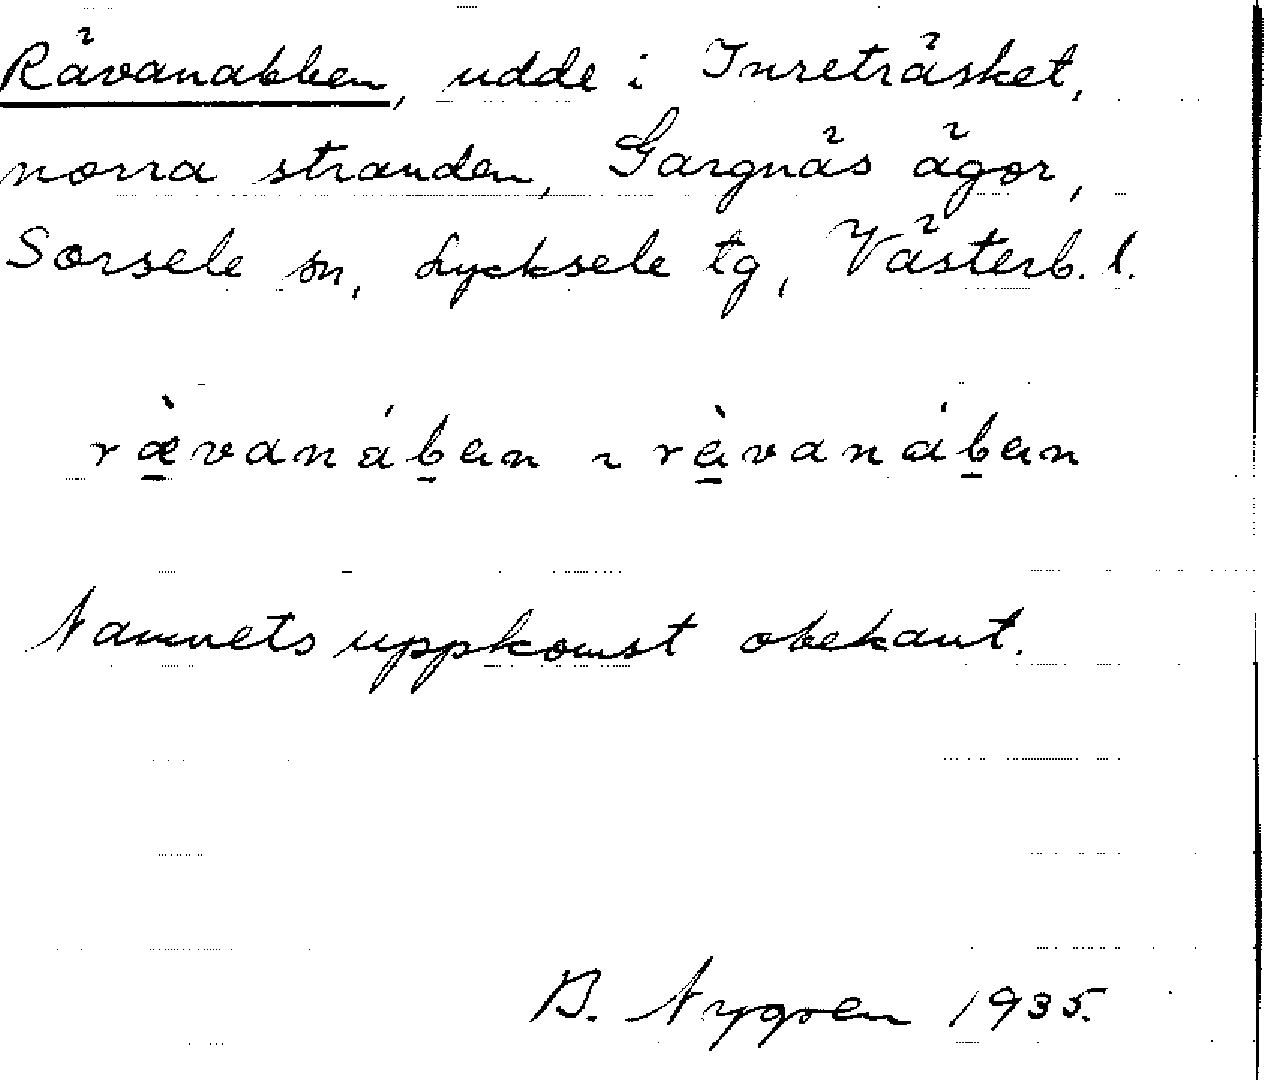 Rävanabben, udde i Inreträsket,
norra stranden, Gargnäs ägor,
Sorsele sn, Lycksele tg, Västerb. l.
ræ̀vanáben ~ ràvanáben
Namnets uppkomst obekant.
B. Nygren 1935.